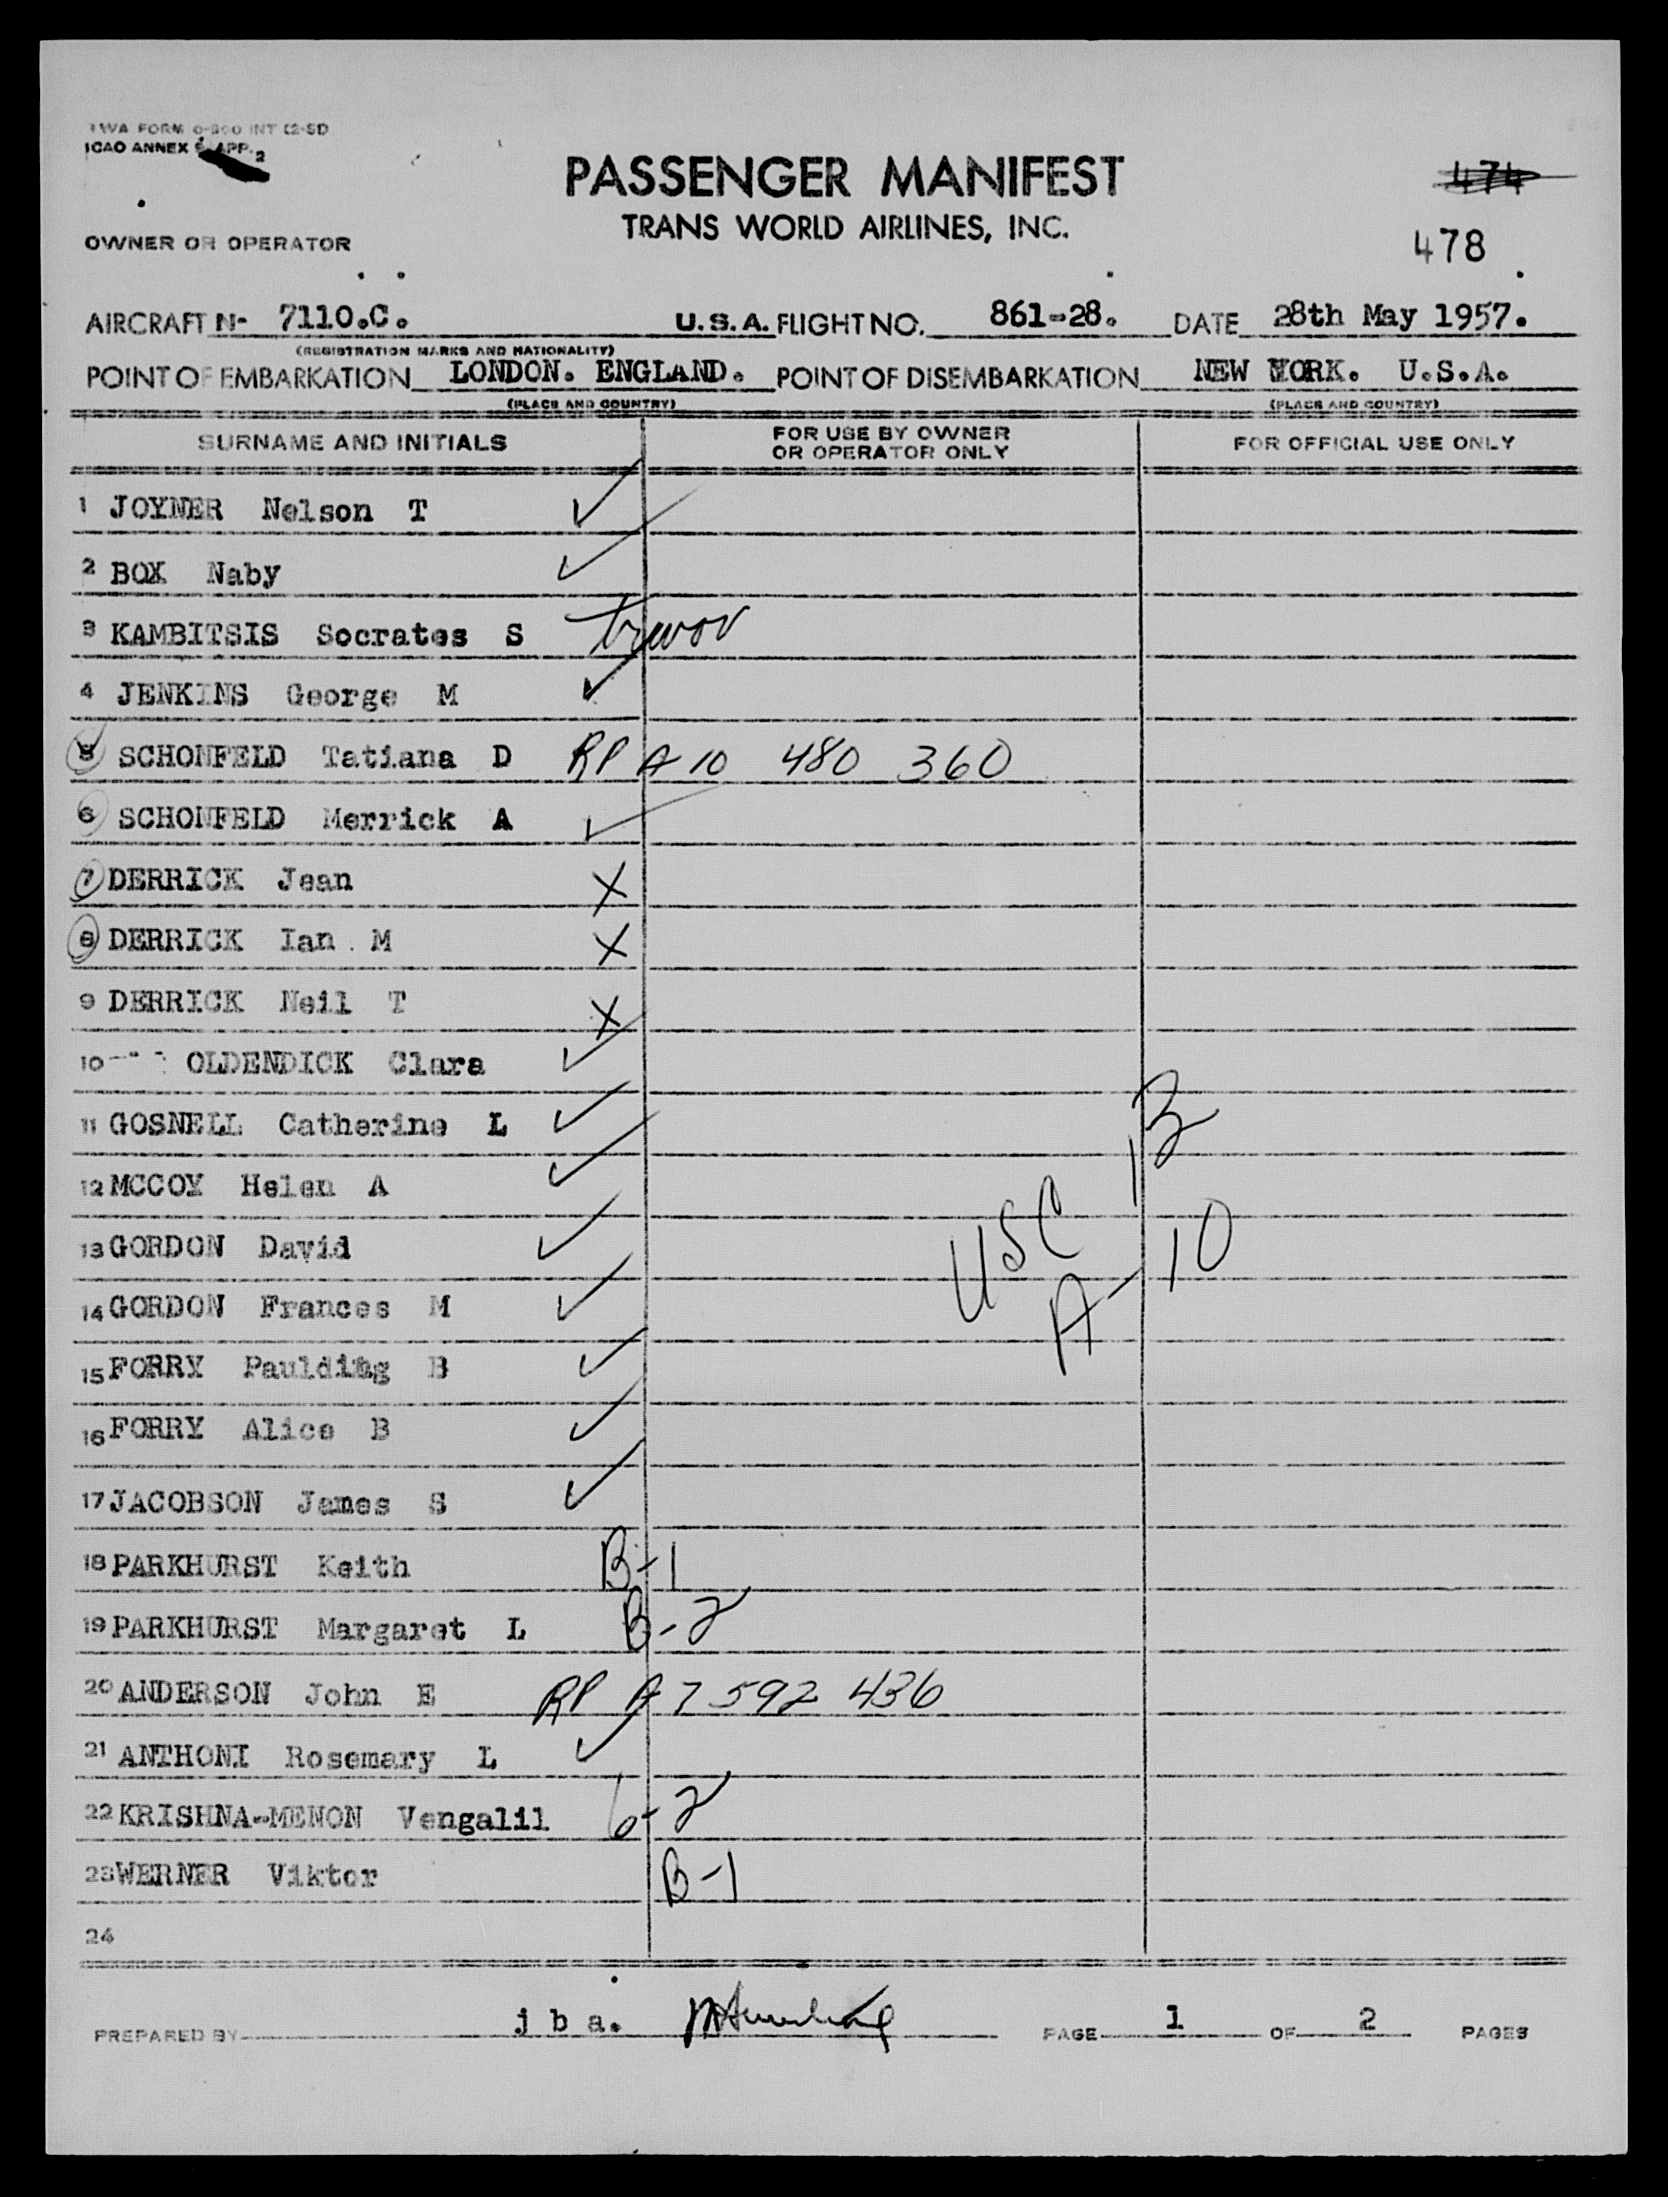 TWA FORM 0-200 INT 12-50
ICAO ANNEX 9 APP. 2
PASSENGER MANIFEST
TRANS WORLD AIRLINES, INC.
474
478
OWNER OR OPERATOR
AIRCRAFT No 7110.C. U.S.A. FLIGHT NO. 861-28. DATE 28th May 1957.
(REGISTRATION MARKS AND NATIONALITY)
POINT OF EMBARKATION LONDON. ENGLAND. POINT OF DISEMBARKATION NEW YORK. U.S.A.
(PLACE AND COUNTRY) (PLACE AND COUNTRY)
SURNAME AND INITIALS FOR USE BY OWNER OR OPERATOR ONLY FOR OFFICIAL USE ONLY
1 JOYNER Nelson T ✓
2 BOX Naby ✓
3 KAMBITSIS Socrates S
4 JENKINS George M ✓
5 SCHONFELD Tatiana D RP A 10 480 360
6 SCHONFELD Merrick A ✓
7 DERRICK Jean X
8 DERRICK Ian M X
9 DERRICK Neil T X
10 OLDENDICK Clara ✓
11 GOSNELL Catherine L ✓
12 MCCOY Helen A ✓
13 GORDON David ✓
USC 13
14 GORDON Frances M ✓
A 10
15 FORRY Paulding B ✓
16 FORRY Alice B ✓
17 JACOBSON James S ✓
18 PARKHURST Keith B-1
19 PARKHURST Margaret L B-2
20 ANDERSON John E RP A 7 592 436
21 ANTHONI Rosemary L ✓
22 KRISHNA-MENON Vengalil 6-2
23 WERNER Viktor B-1
24
PREPARED BY j b a. PAGE 1 OF 2 PAGES